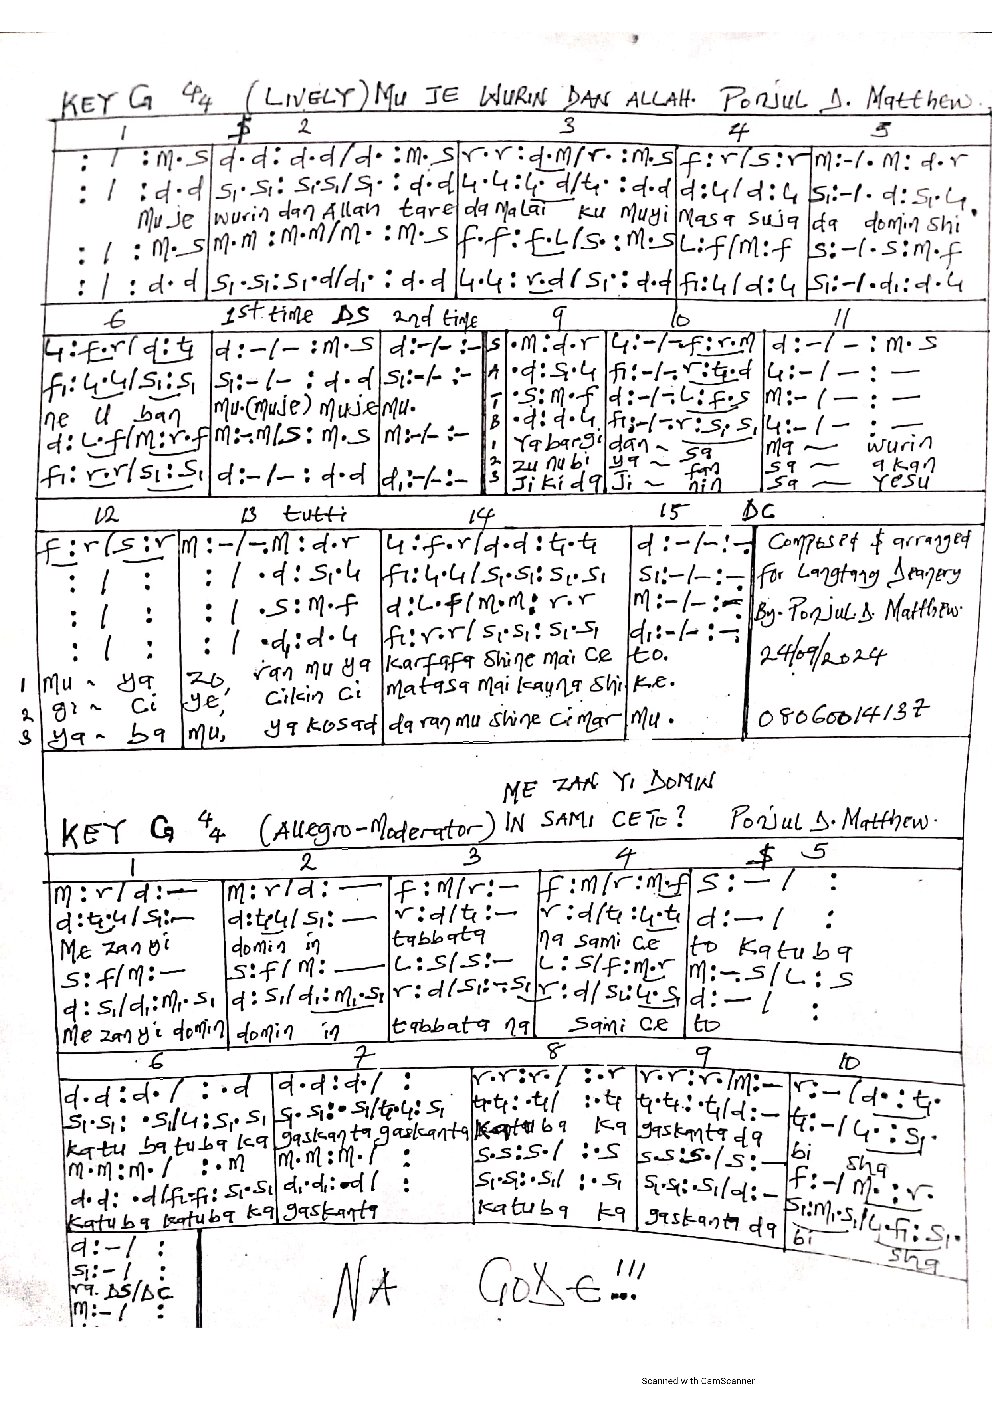 KEY G 4/4 (LIVELY) MU JE WURIN DAN ALLAH. Ponjul D. Matthew.
1 $ 2 3 4 5
: / : m.s | d.d : d.d / d. : m.s | r.r : d.m / r. : m.s | f : r / s : r | m :- / . m : d.r
: / : d.d | s₁.s₁ : s₁.s₁ / s₁. : d.d | l₁.l₁ : l₁.d / t₁. : d.d | d : l₁ / d : l₁ | s₁ :- / . d : s₁.l₁
Mu je wurin dan Allah tare da malai ku muyi masa suja da domin shi
: / : m.s | m.m : m.m / m. : m.s | f.f : f.l / s. : m.s | l : f / m : f | s :- / . s : m.f
: / : d.d | s₁.s₁ : s₁.d / d₁. : d.d | l₁.l₁ : r.d / s₁. : d.d | f₁ : l₁ / d : l₁ | s₁ :- / . d₁ : d.l₁
6 1st time DS 2nd time 9 10 11
l₁ : f.r / d : t₁ | d :- / - : m.s | d :- / - :- | S | .m : d.r | l₁ :- / - . f : r.m | d :- / - : m.s
f₁ : l₁.l₁ / s₁ : s₁ | s₁ :- / - : d.d | s₁ :- / - :- | A | .d : s₁.l₁ | f₁ :- / - . r : t₁.d | l₁ :- / - : -
ne U ban mu. (muje) muje mu. T .s : m.f | d :- / - . l : f.s | m :- / - : -
d : l.f / m : r.f | m :- . m / s : m.s | m :- / - :- | B | .d : d.l₁ | f₁ :- / - . r : s₁.s₁ | l₁ :- / - : -
1 Ya bargi dan ~ sa ma ~ wurin
f₁ : r.r / s₁ : s₁ | d :- / - : d.d | d₁ :- / - :- | 2 zu nu bi ya ~ fan sa ~ akan
3 Ji ki da Ji ~ nin sa ~ Yesu
12 13 tutti 14 15 DC
f : r / s : r | m :- / - . m : d.r | l₁ : f.r / d.d : t₁.t₁ | d :- / - :- | Composed & arranged
: / : | : / . d : s₁.l₁ | f₁ : l₁.l₁ / s₁.s₁ : s₁.s₁ | s₁ :- / - :- | for Langtang Deanery
: / : | : / . s : m.f | d : l.f / m.m : r.r | m :- / - :- | By. Ponjul D. Matthew.
: / : | : / . d₁ : d.l₁ | f₁ : r.r / s₁.s₁ : s₁.s₁ | d₁ :- / - :- | 24/09/2024
1 mu ~ ya zo, ran mu ya karfafa shine mai ce to.
2 gi ~ ci ye, cikin ci matasa mai kauna shi ke.
3 ya ~ ba mu, ya kosad da ran mu shine ci mar mu. 08060014137
ME ZAN YI DOMIN
KEY G 4/4 (Allegro-Moderator) IN SAMI CETO? Ponjul D. Matthew.
1 2 3 4 $ 5
m : r / d : - | m : r / d : - | f : m / r : - | f : m / r : m.f | s : - / :
d : t₁.l₁ / s₁ : - | d : t₁.l₁ / s₁ : - | r : d / t₁ : - | r : d / t₁ : l₁.t₁ | d : - / :
Me zan yi domin in tabbata na sami ce to Katuba
s : f / m : - | s : f / m : - | l : s / s : - | l : s / f : m.r | m : - . s / l : s
d : s₁ / d₁ : m₁.s₁ | d : s₁ / d₁ : m₁.s₁ | r : d / s₁ : - . s₁ | r : d / s₁ : l₁.s₁ | d : - / :
Me zan yi domin domin in tabbata na sami ce to
6 7 8 9 10
d.d : d. / : . d | d.d : d. / : | r.r : r. / : . r | r.r : r. / m : - | r : - / d . : t₁.
s₁.s₁ : . s₁ / l₁ : s₁.s₁ | s₁.s₁ : . s₁ / t₁.l₁ : s₁ | t₁.t₁ : . t₁ / : . t₁ | t₁.t₁ : . t₁ / d : - | t₁ : - / l₁ . : s₁.
katu ba tuba ka gaskanta gaskanta katuba ka gaskanta da bi sha
m.m : m. / : . m | m.m : m. / : | s.s : s. / : . s | s.s : s. / s : - | f : - / m . : r.
d.d : . d / f₁.f₁ : s₁.s₁ | d₁.d₁ : . d / : | s₁.s₁ : . s₁ / : . s₁ | s₁.s₁ : . s₁ / d : - | s₁ : m₁.s₁ / l₁.f₁ : s₁.
katu ba katuba ka gaskanta katuba ka gaskanta da bi sha
d : - / :
s₁ : - / :
ra. DS/DC
m : - / :
NA GODE!!!
Scanned with CamScanner